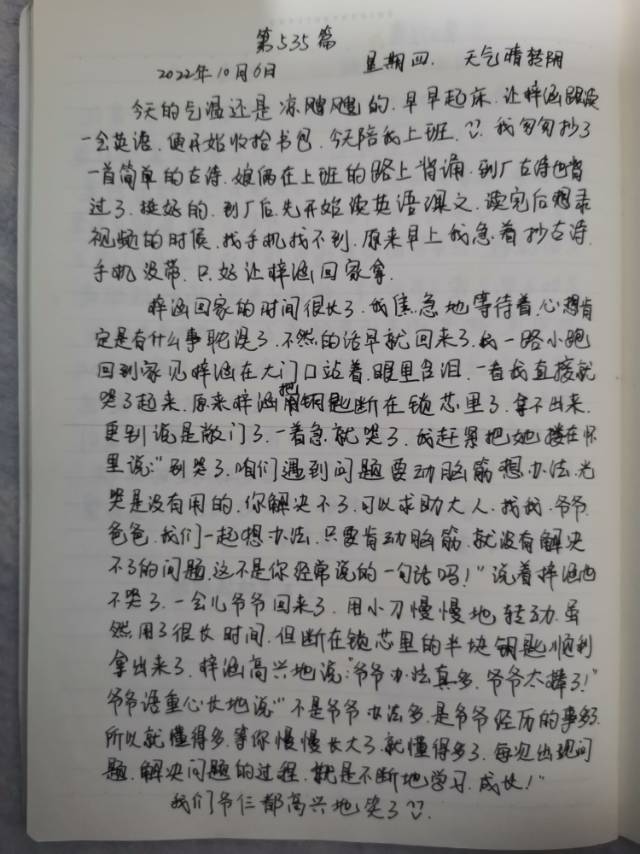 第535篇
2022年10月6日 星期四. 天气晴转阴
今天的气温还是凉飕飕的.早早起床.让梓涵跟读
一会英语.便开始收拾书包.今天陪我上班.我匆匆抄了
一首简单的古诗.娘俩在上班的路上背诵.到厂古诗也背
过了.挺好的.到厂后.先开始读英语课文.读完后想录
视频的时候.找手机找不到.原来早上我急着抄古诗.
手机没带.只好让梓涵回家拿.
梓涵回家的时间很长了.我焦急地等待着.心想肯
定是有什么事耽误了.不然的话早就回来了.我一路小跑
回到家见梓涵在大门口站着.眼里含泪.一看我直接就
哭了起来.原来梓涵把钥匙断在锁芯里了.拿不出来.
更别说是敞门了.一着急就哭了.我赶紧把她搂在怀
里说:“别哭了.咱们遇到问题要动脑筋想办法.光
哭是没有用的.你解决不了.可以求助大人.找我.爷爷.
爸爸.我们一起想办法.只要肯动脑筋.就没有解决
不了的问题.这不是你经常说的一句话吗!”说着梓涵也
不哭了.一会儿爷爷回来了.用小刀慢慢地转动.虽
然用了很长时间.但断在锁芯里的半块钥匙顺利
拿出来了.梓涵高兴地说:“爷爷办法真多.爷爷太棒了!”
爷爷语重心长地说“不是爷爷办法多.是爷爷经历的事多了.
所以就懂得多.等你慢慢长大了.就懂得多了.每次出现问
题.解决问题的过程.就是不断地学习.成长!”
我们爷仨都高兴地笑了.